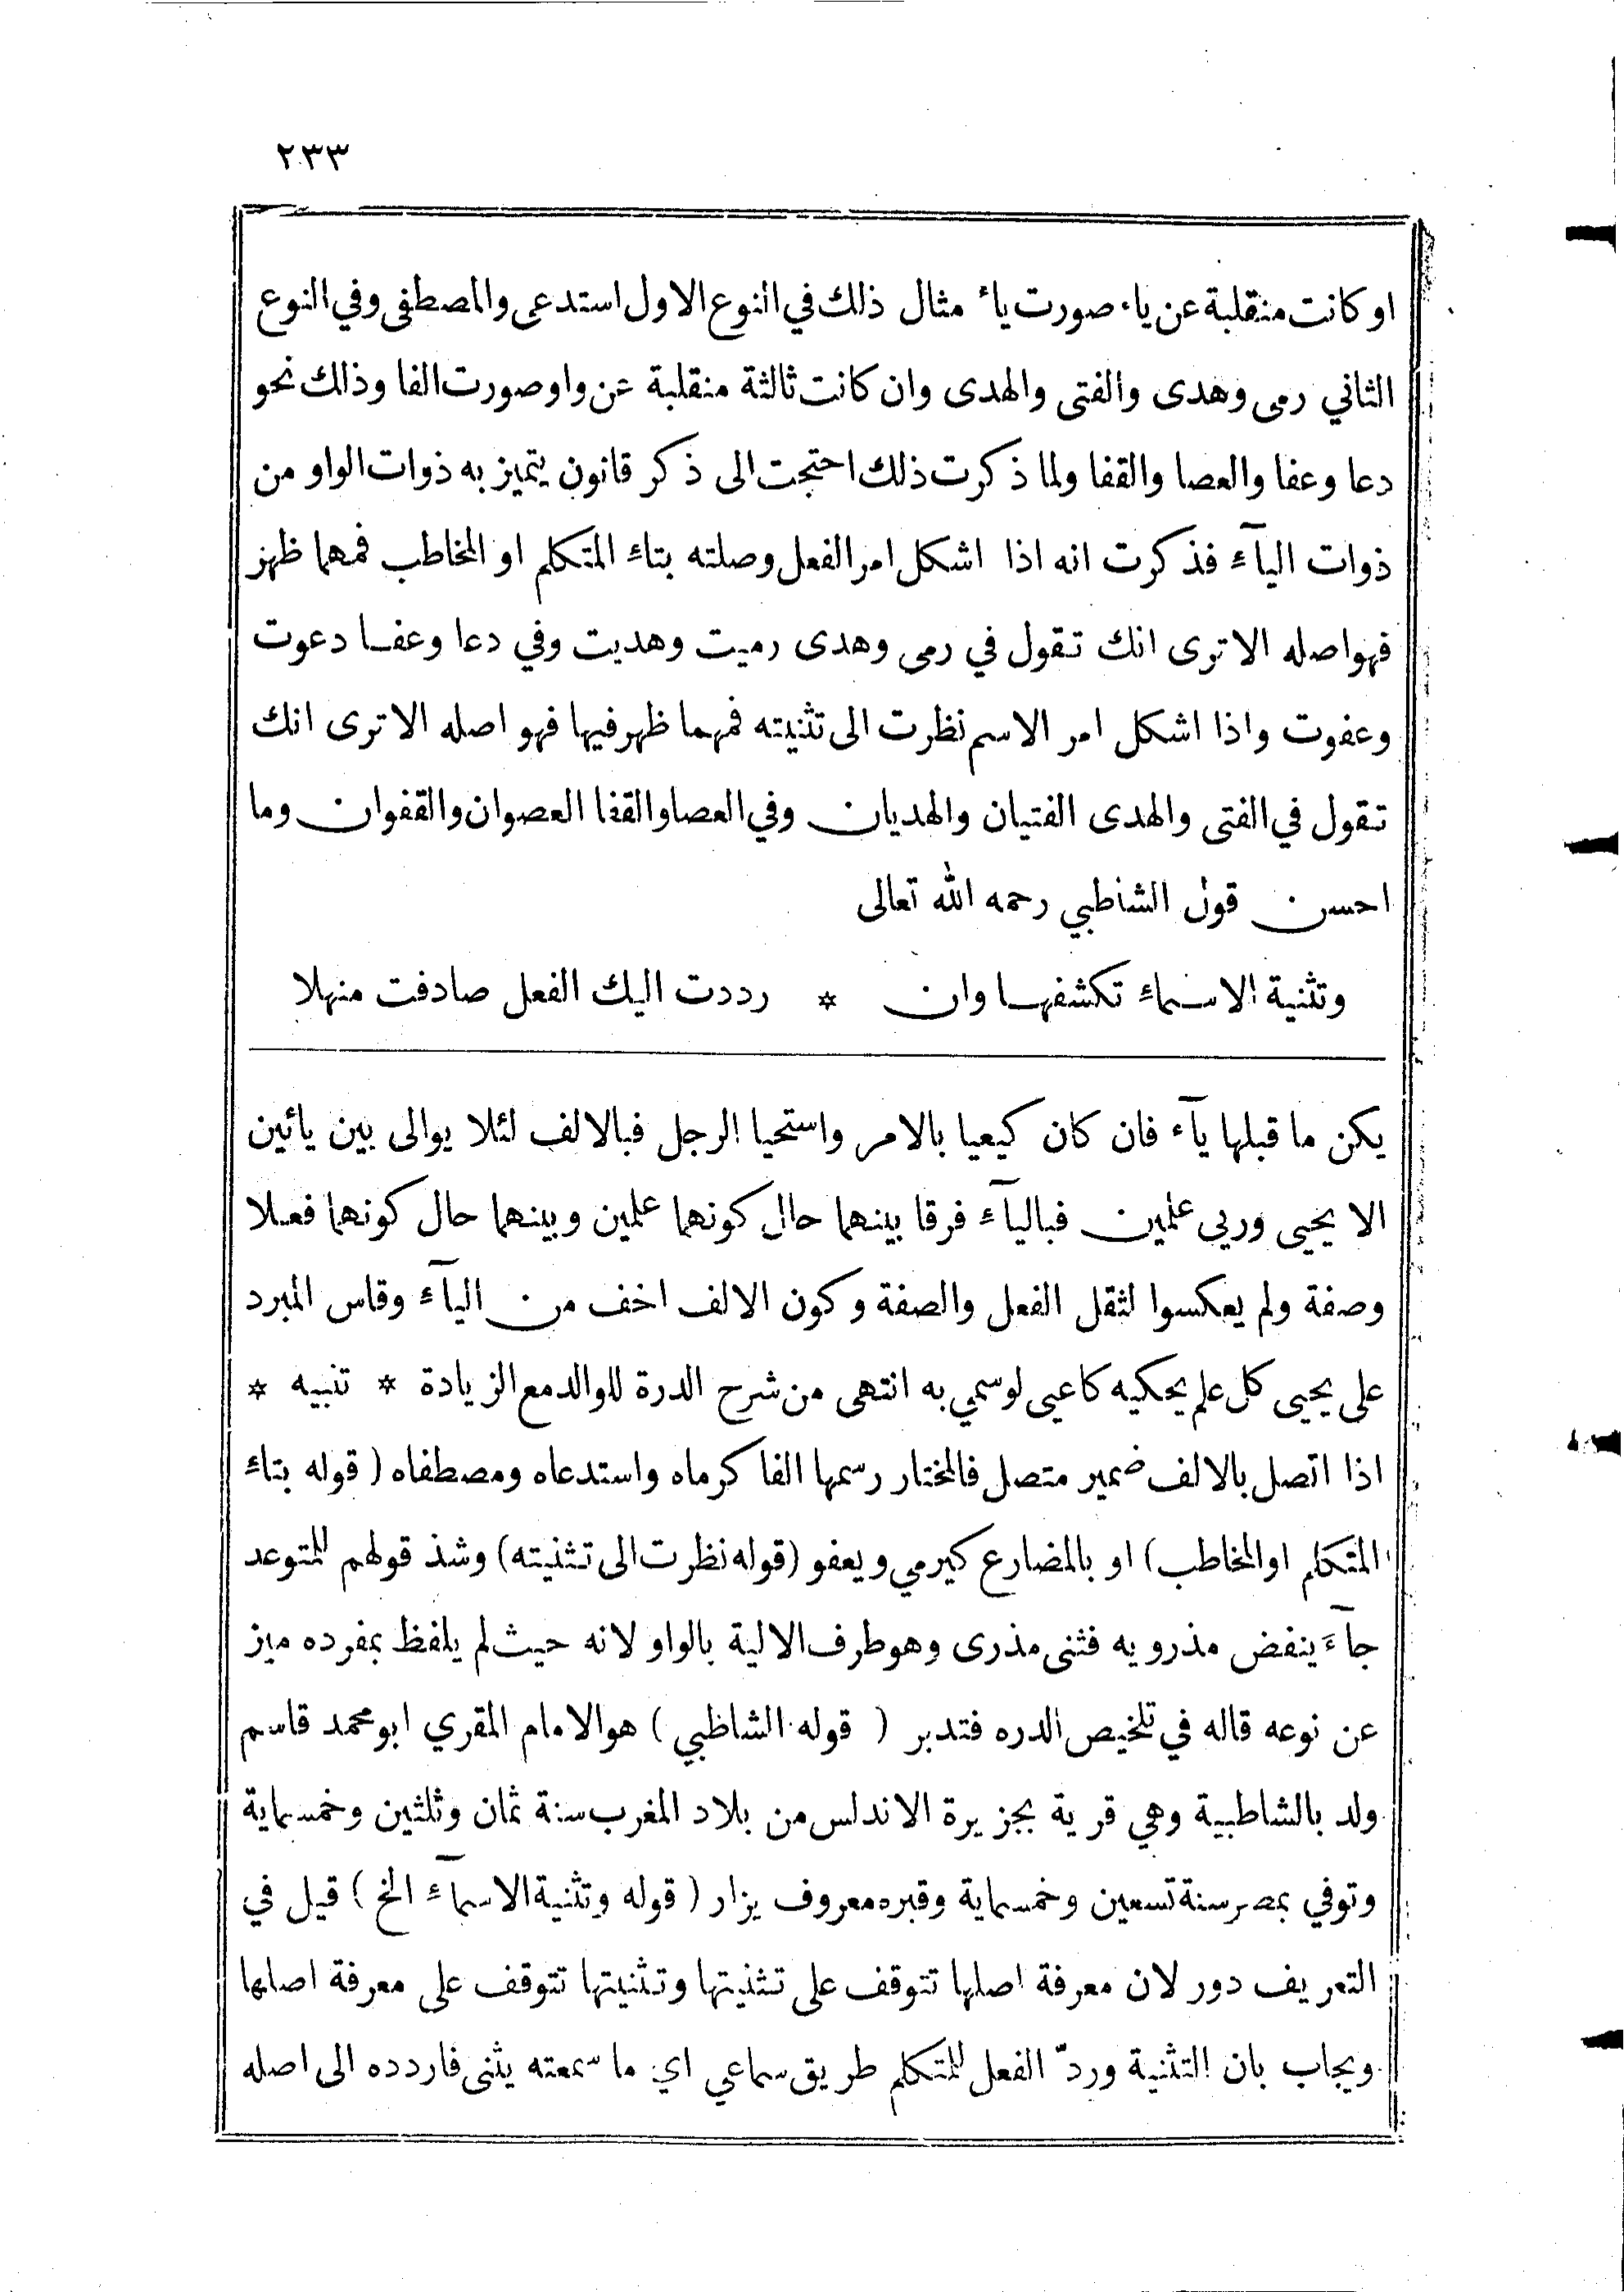 ٢٣٣
او كانت منقلبة عن ياء صورت ياء مثال ذلك في النوع الاول استدعى والمصطفى وفي النوع
الثاني رمى وهدى والفتى والهدى وان كانت ثالثة منقلبة عن واو صورت الفا وذلك نحو
دعا وعفا والعصا والقفا ولما ذكرت ذلك احتجت الى ذكر قانون يتميز به ذوات الواو من
ذوات اليآء فذكرت انه اذا اشكل امر الفعل وصلته بتاء المتكلم او المخاطب فمهما ظهر
فهو اصله الا ترى انك تقول في رمى وهدى رميت وهديت وفي دعا وعفا دعوت
وعفوت واذا اشكل امر الاسم نظرت الى تثنيته فمهما ظهر فيها فهو اصله الا ترى انك
تقول في الفتى والهدى الفتيان والهديان وفي العصا والقفا العصوان والقفوان وما
احسن قول الشاطبي رحمه الله تعالى
وتثنية الاسماء تكشفها وان * رددت اليك الفعل صادفت منهلا
يكن ما قبلها يآء فان كان كيعيا بالامر واستحيا الرجل فبالالف لئلا يوالى بين يائين
الا يحيى وربى علمين فباليآء فرقا بينهما حال كونهما علمين وبينهما حال كونهما فعلا
وصفة ولم يعكسوا لثقل الفعل والصفة وكون الالف اخف من اليآء وقاس المبرد
على يحيى كل علم يحكيه كاعيى لو سمي به انتهى من شرح الدرة للوالد مع الزيادة * تنبيه *
اذا اتصل بالالف ضمير متصل فالمختار رسمها الفا كرماه واستدعاه ومصطفاه ( قوله بتاء
المتكلم او المخاطب ) او بالمضارع كيرمي ويعفو ( قوله نظرت الى تثنيته ) وشذ قولهم للمتوعد
جآءَ ينفض مذرويه فثنى مذرى وهو طرف الالية بالواو لانه حيث لم يلفظ بمفرده ميز
عن نوعه قاله في تلخيص الدره فتدبر ( قوله الشاطبي ) هو الامام المقري ابو محمد قاسم
ولد بالشاطبية وهي قرية بجزيرة الاندلس من بلاد المغرب سنة ثمان وثلثين وخمسماية
وتوفي بمصر سنة تسعين وخمسماية وقبره معروف يزار ( قوله وتثنية الاسمآء الخ ) قيل في
التعريف دور لان معرفة اصلها تتوقف على تثنيتها وتثنيتها تتوقف على معرفة اصلها
ويجاب بان التثنية وردّ الفعل للمتكلم طريق سماعي اي ما سمعته يثنى فاردده الى اصله